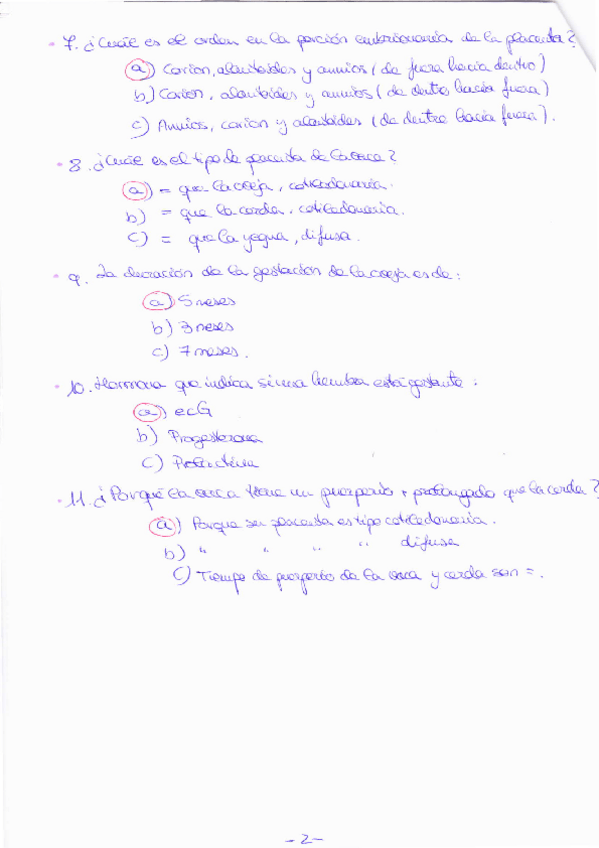 7. ¿Cuál es el orden en la porción embrionaria de la placenta?
a) Corion, alantoides y amnios (de fuera hacia dentro)
b) Corion, alantoides y amnios (de dentro hacia fuera)
c) Amnios, corion y alantoides (de dentro hacia fuera).
8. ¿Cuál es el tipo de placenta de la vaca?
a) = que la oveja, cotiledonaria.
b) = que la cerda, cotiledonaria.
c) = que la yegua, difusa.
9. La duración de la gestación de la oveja es de:
a) 5 meses
b) 3 meses
c) 7 meses.
10. Hormona que indica si una hembra está gestante:
a) ecG
b) Progesterona
c) Prolactina
11. ¿Por qué la vaca tiene un puerperio + prolongado que la cerda?
a) Porque su placenta es tipo cotiledonaria.
b) " " " " difusa
c) Tiempo de puerperio de la vaca y cerda son =.
-2-